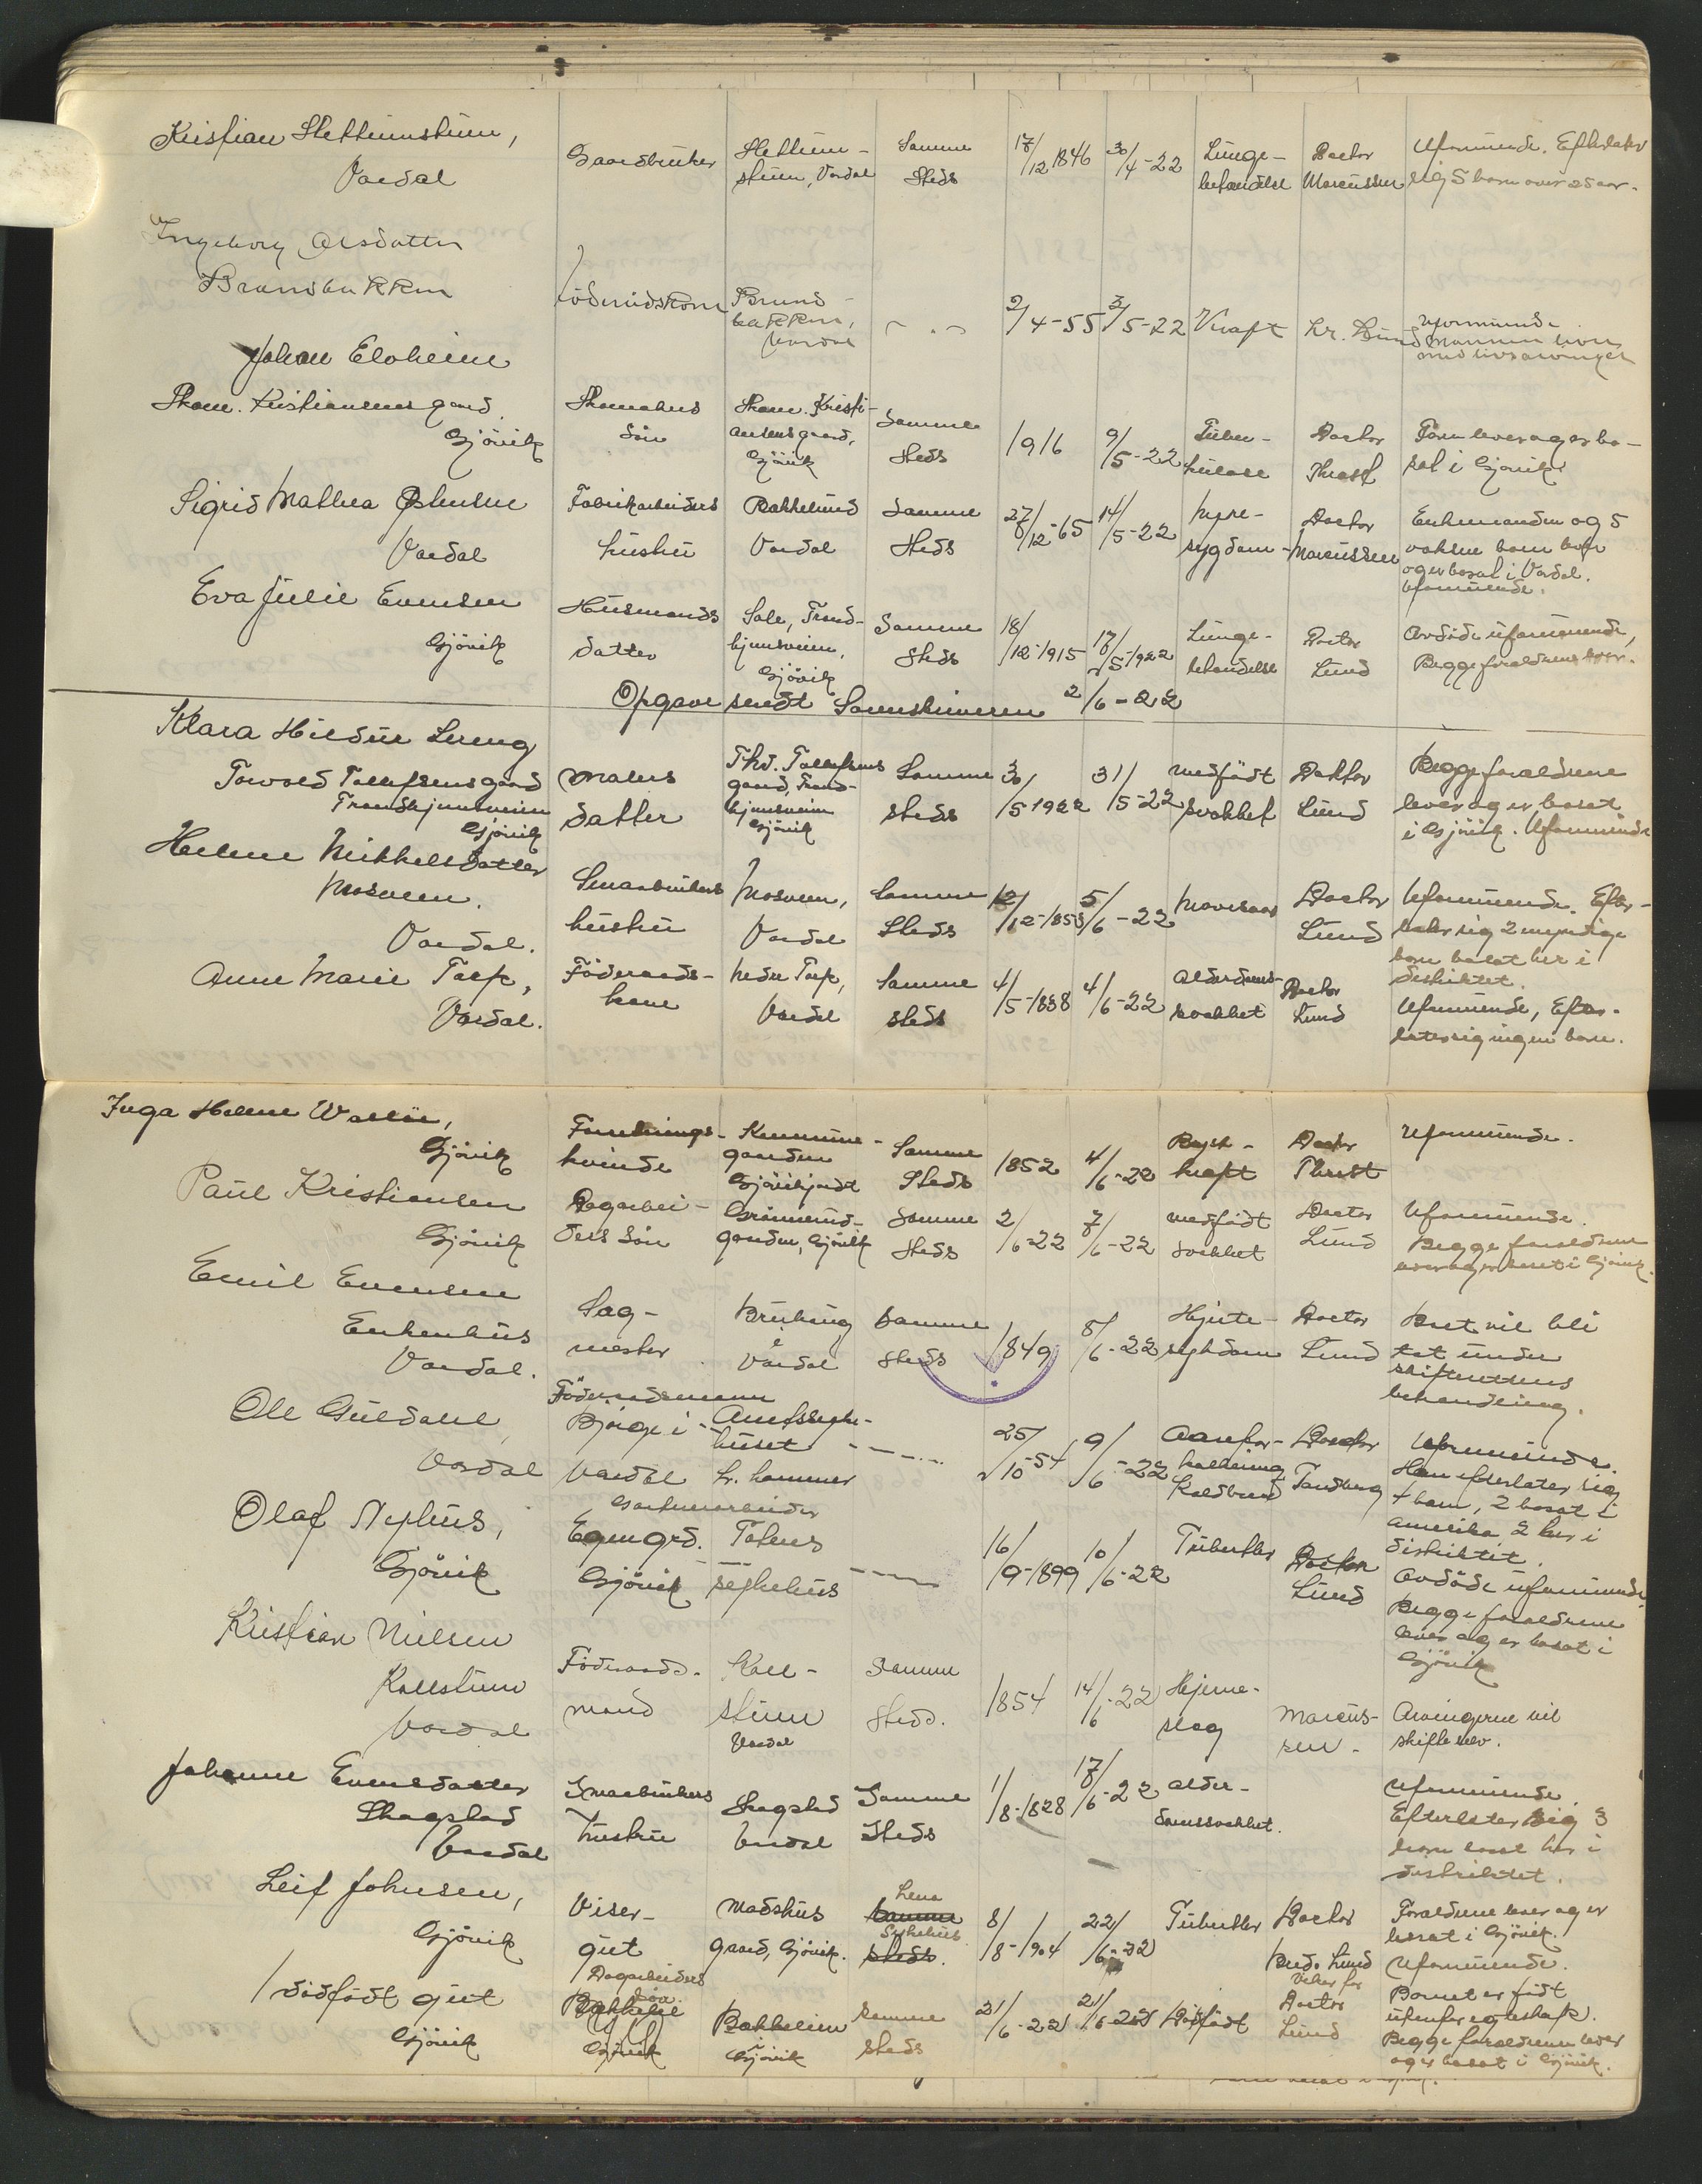 Kristian Slettumstuen, Gaardbruker Slettum- Samme 17/12 1846 30/4-22 Lunge- Doctor Uformuende. Efterlater
Vardal stuen, Vardal Steds betændelse Marcussen sig 5 barn over 25 aar.
Ingeborg Olsdatter
Brandbakken Föderaadskone Brand- - " - 2/4-55 3/5-22 Kraft Dr. Lund Uformuende
bakken, Manden lever
Vardal med livsarvinger
Johan Elvheim
Skom. Kristiansens gaard. Skomakers Skom. Kristi- Samme 1916 9/5-22 Tuber- Doctor Faren lever og er bo-
Gjövik Sön ansens gaard, Steds kulose Thrast sat i Gjövik.
Gjövik
Sigrid Mathea Fabrikarbeiders Bakkelund Samme 27/12-65 14/5-22 Nyre- Doctor Enkemanden og 5
Vardal hustru Vardal Steds sygdom Marcussen voksne barn lever
og er bosat i Vardal.
Uformuende.
Eva Julie Evensen Husmands Sole, Trond- Samme 18/12-1915 17/5-1922 Lunge- Doctor Avdöde uformuende,
Gjövik datter hjemsveien, Steds betændelse Lund Begge forældrene lever.
Gjövik
Opgave sendt Sorenskriveren 2/6-22
Klara Hildur Lereng
Torvald Tollefsens gaard Malers Thv. Tollefsens Samme 30/5 1922 31/5-22 medfödt Doktor Begge forældrene
Trondhjemsveien datter gaard, Trond- steds svakhet Lund lever og er bosat
Gjövik hjemsveien i Gjövik. Uformuende
Gjövik
Helene Mikkelsdatter Smaabrukers Mosveen, Samme 12/12-1853 5/6-22 Mavesaar Doctor Uformuende. Efter-
Mosveen. hustru Vardal Steds Lund later sig 2 myndige
Vardal. barn bosat her i
distriktet.
Anne Marie Torp, Föderaads- Nedre Torp, Samme 4/5-1838 4/6-22 Alderdoms- Doctor Uformuende, Efter-
Vardal. kone Vardal steds svakhet Lund later sig ingen barn.
Inga Helene Forsörgings- Kommune- Samme 1852 4/6-22 Bryst- Doctor Uformuende.
Gjövik kvinde gaarden Steds kræft Thrast
Paul Kristiansen Dagarbei- Grönnerud- Samme 2/6-22 7/6-22 medfödt Doctor Uformuende.
Gjövik ders Sön gaarden, Gjövik Steds svakhet Lund Begge forældrene
lever og er bosat i Gjövik.
Emil Evensen
Enkenhus Sag- Bruking Samme 1849 8/6-22 Hjerte- Doctor Boet vil bli
Vardal. mester Vardal Steds sykdom Lund tat under
skifterettens
behandling.
Föderaadsmann
Ole Guldahl, Bjørge i Amtssyke- - " - 25/10-54 9/6-22 Aarefor- Doctor Uformuende.
Vardal Vardal huset kalkning Tandberg Han efterlater sig
L. hammer Koldbrand 4 barn, 2 bosat i
Amerika 2 her i
distriktet.
Gartnerarbeider
Olaf Nephus, Egengrd. Totens - " - 16/9-1899 10/6-22 Tuberkler Doctor Avdöde uformuende.
Gjövik Gjövik sykehus Lund Begge forældrene
lever og er bosat i
Gjövik
Kristian Nielsen
Kallstuen Föderaads- Kall- Samme 1854 14/6-22 Hjerne- Marcus- Arvingerne vil
Vardal mand stuen Steds. slag sen. skifte selv.
Vardal
Johanne Evensdatter Smaabrukers Skagstad Samme 1/8-1828 17/6-22 Alder- Uformuende.
Skagstad hustru Vardal Steds domssvakhet. Efterlater sig 3
Vardal barn bosat her i
distriktet.
Leif Johnsen, Viser- Madshus Lena 8/8-1904 22/6-22 Tuberkler Doctor Forældrene lever og er
Gjövik gut gaard, Gjövik. Sykehus Lund bosat i Gjövik.
Samme steds. Uformuende.
1 dödfödt gut Dagarbeiders sön Bakkelien Samme 21/6-22 21/6-22 Dödfödt Vikar for Barnet er födt
Gjövik Gjövik i Gjövik steds Doctor utenfor egteskap.
Lund Begge forældrene lever
og er bosat i Gjövik.